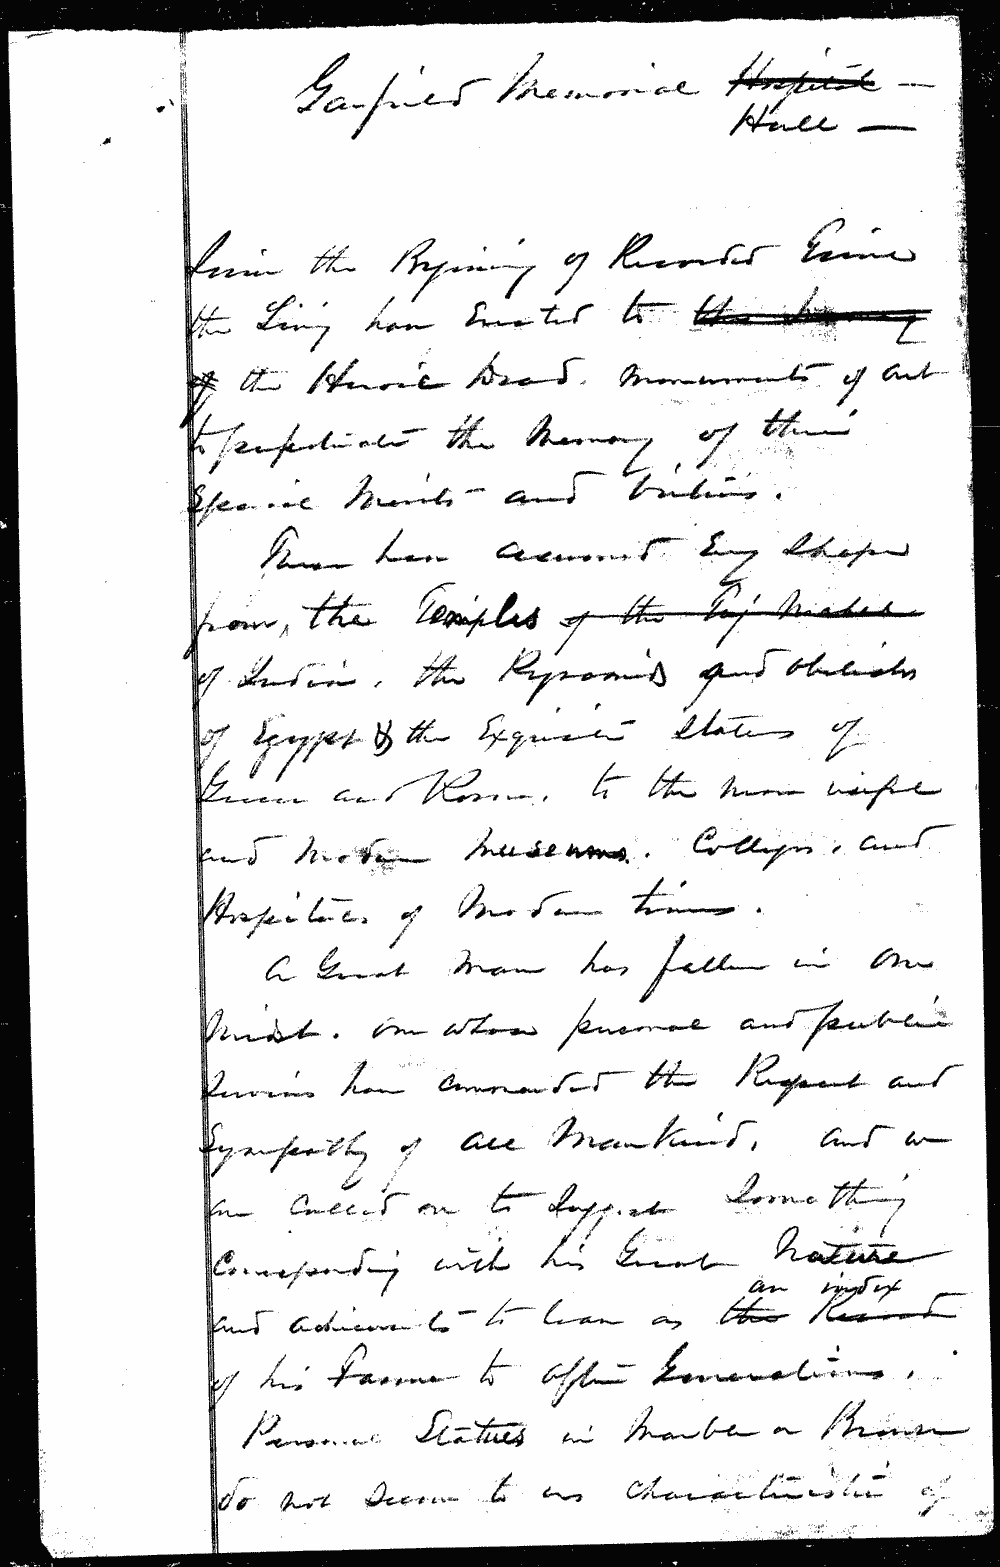 Garfield Memorial Hospital —
Hall —
Since the Beginning of Recorded Time
the Living have Erected to the memory
of the Heroic Dead. Monuments of art
to perpetuate the Memory of their
Special Merits and Virtues.
These have assumed Every Shape
from, the Temples of the Taj Mahal
of India, the Pyramids and obelisks
of Egypt & the Exquisite Statues of
Greece and Rome, to the more useful
and Modern Museums, Colleges, and
Hospitals of Modern times.
A Great Man has fallen in our
Midst. one whose personal and public
Services have commanded the Respect and
Sympathy of all Mankind, and we
are called on to Suggest Something
Corresponding with his Great Nature
an index
and achievements to leave as the Record
of his Fame to after Generations.
Personal Statues in Marble or Bronze
do not seem to us characteristic of